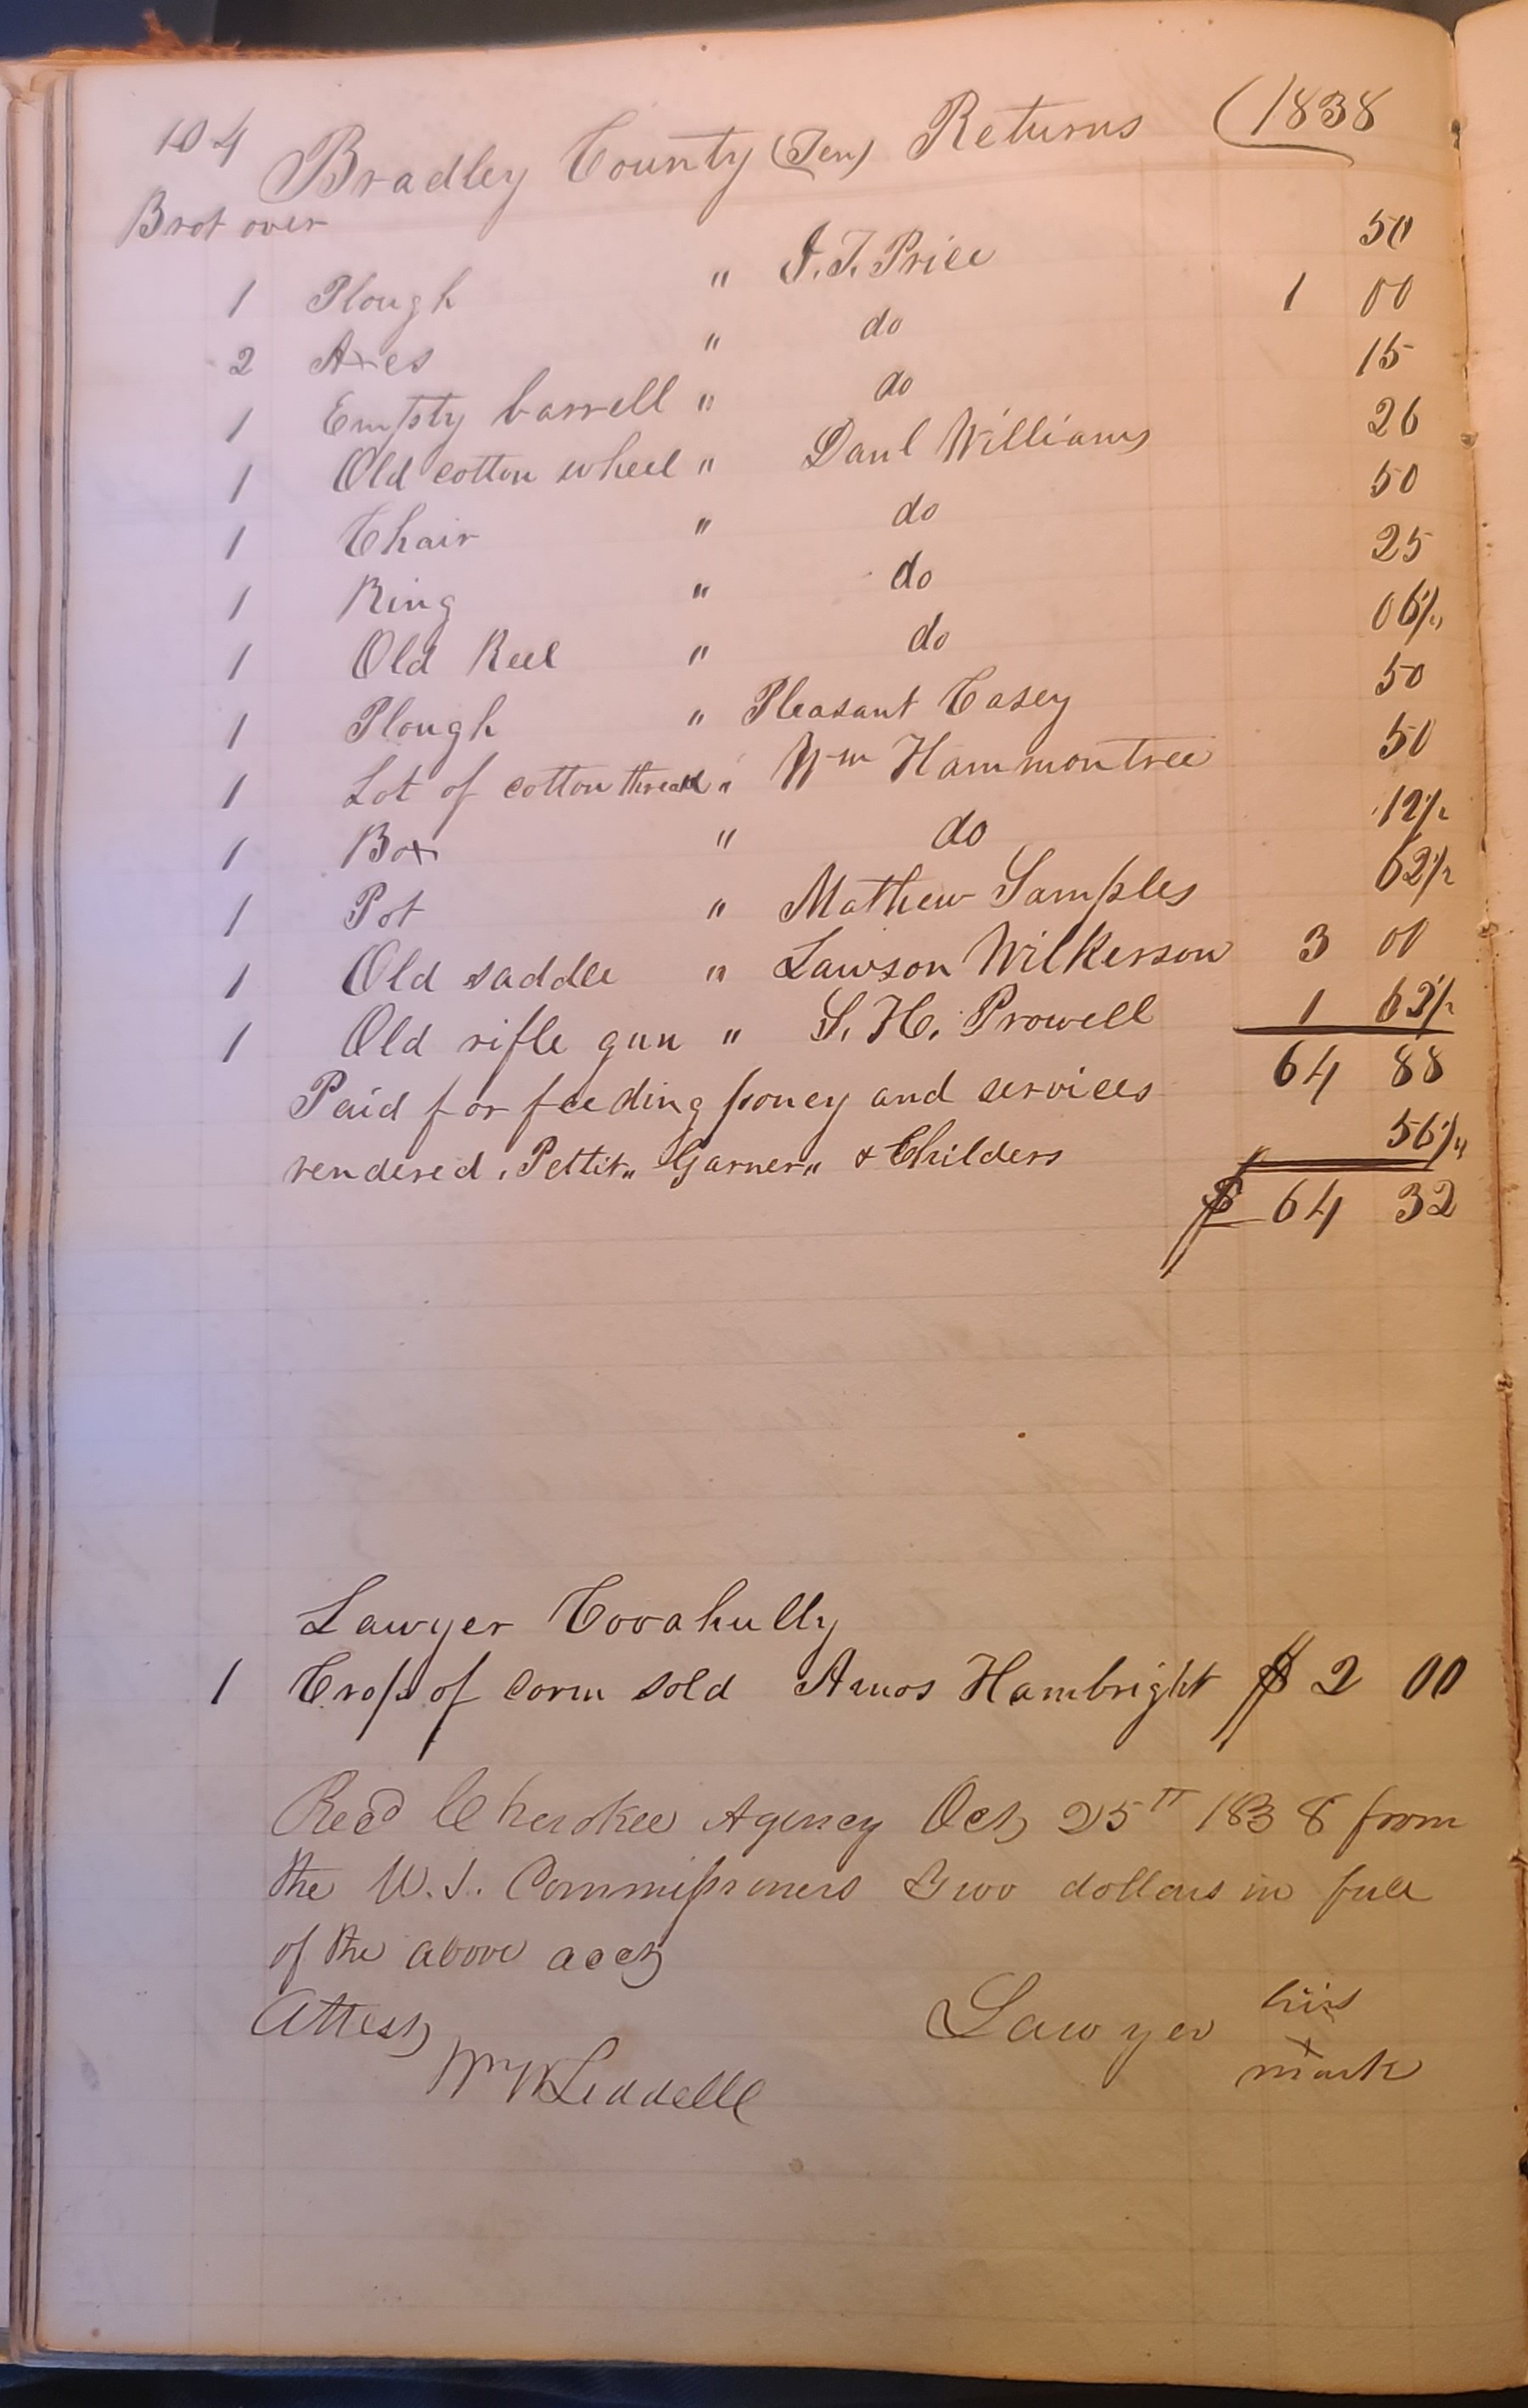 104 Bradley County (Ten) Returns (1838
Brot over
1 Plough " J. T. Price 50
2 Axes " do 1 00
1 Empty barrell " do 15
1 Old cotton wheel " Danl Williams 26
1 Chair " do 50
1 Ring " do 25
1 Old Reel " do 06¼
1 Plough " Pleasant Casey 50
1 Lot of cotton thread " Wm Hammontree 50
1 Box " do 12½
1 Pot " Mathew Samples 62½
1 Old saddle " Lawson Wilkerson 3 00
1 Old rifle gun " S. H. Prowell 1 62½
Paid for feeding poney and services 64 88
rendered, Pettit" Garner" & Childers 56¼
$ 64 32
Lawyer Cooahully
1 Crop of corn sold Amos Hambright $ 2 00
Recd Cherokee Agency Oct 25th 1838 from
the U.S. Commissioners Two dollars in full
of the above acct
Attest
Lawyer his x mark
Wm W Liddelle